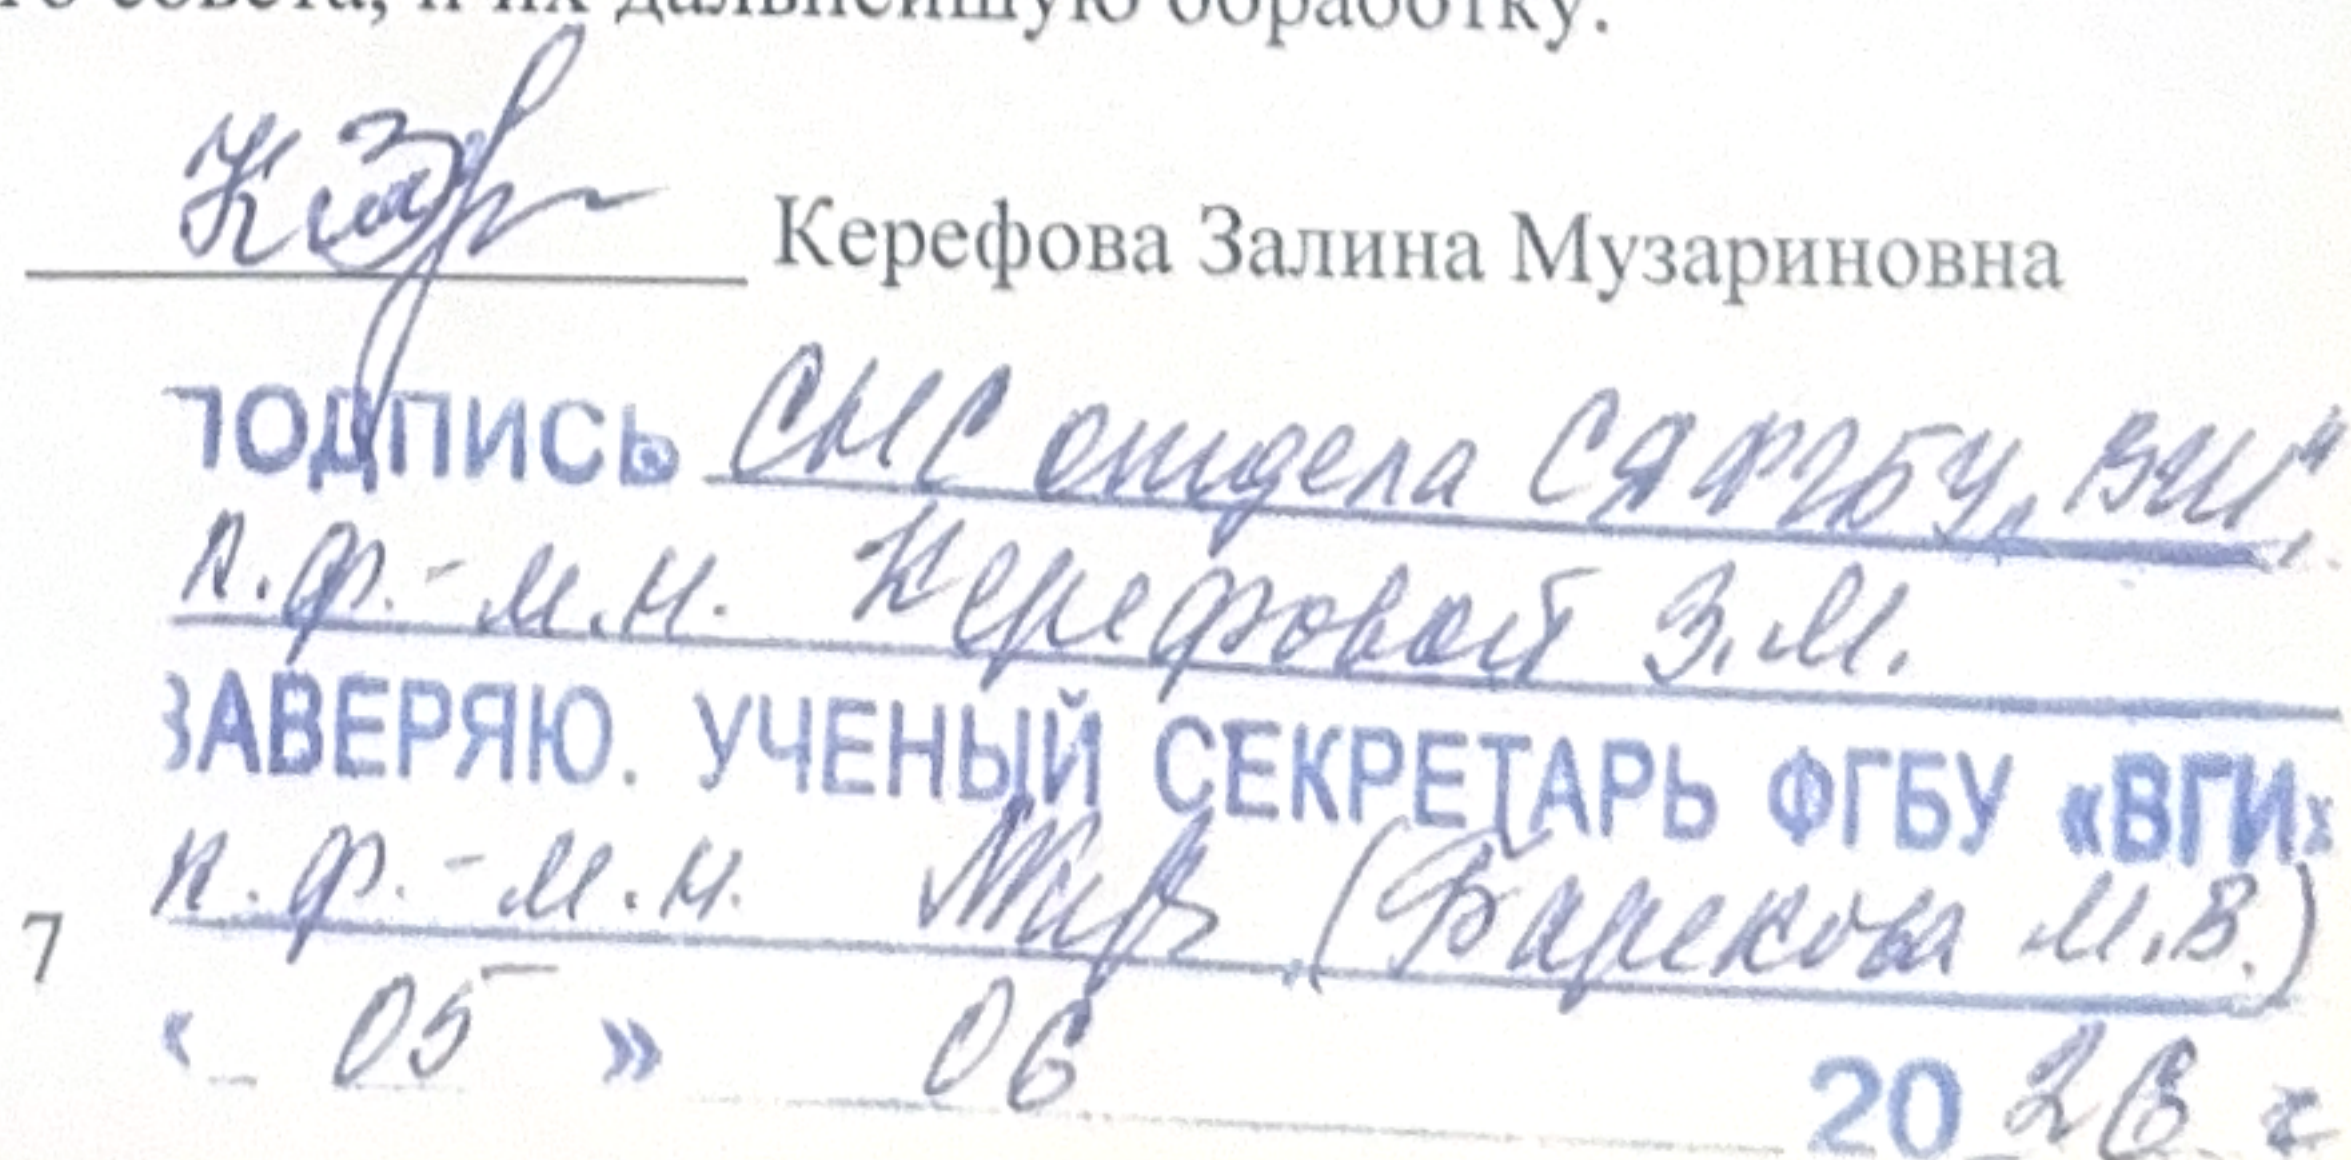 совета, и их дальнейшую обработку.
Керефова Залина Музариновна
ПОДПИСЬ СНС отдела СЯ ФГБУ „ВГИ",
к.ф.-м.н. Керефовой З.М.
ЗАВЕРЯЮ. УЧЕНЫЙ СЕКРЕТАРЬ ФГБУ «ВГИ»
к.ф.-м.н. (Барекова М.В.)
7
« 05 » 06 2026 г